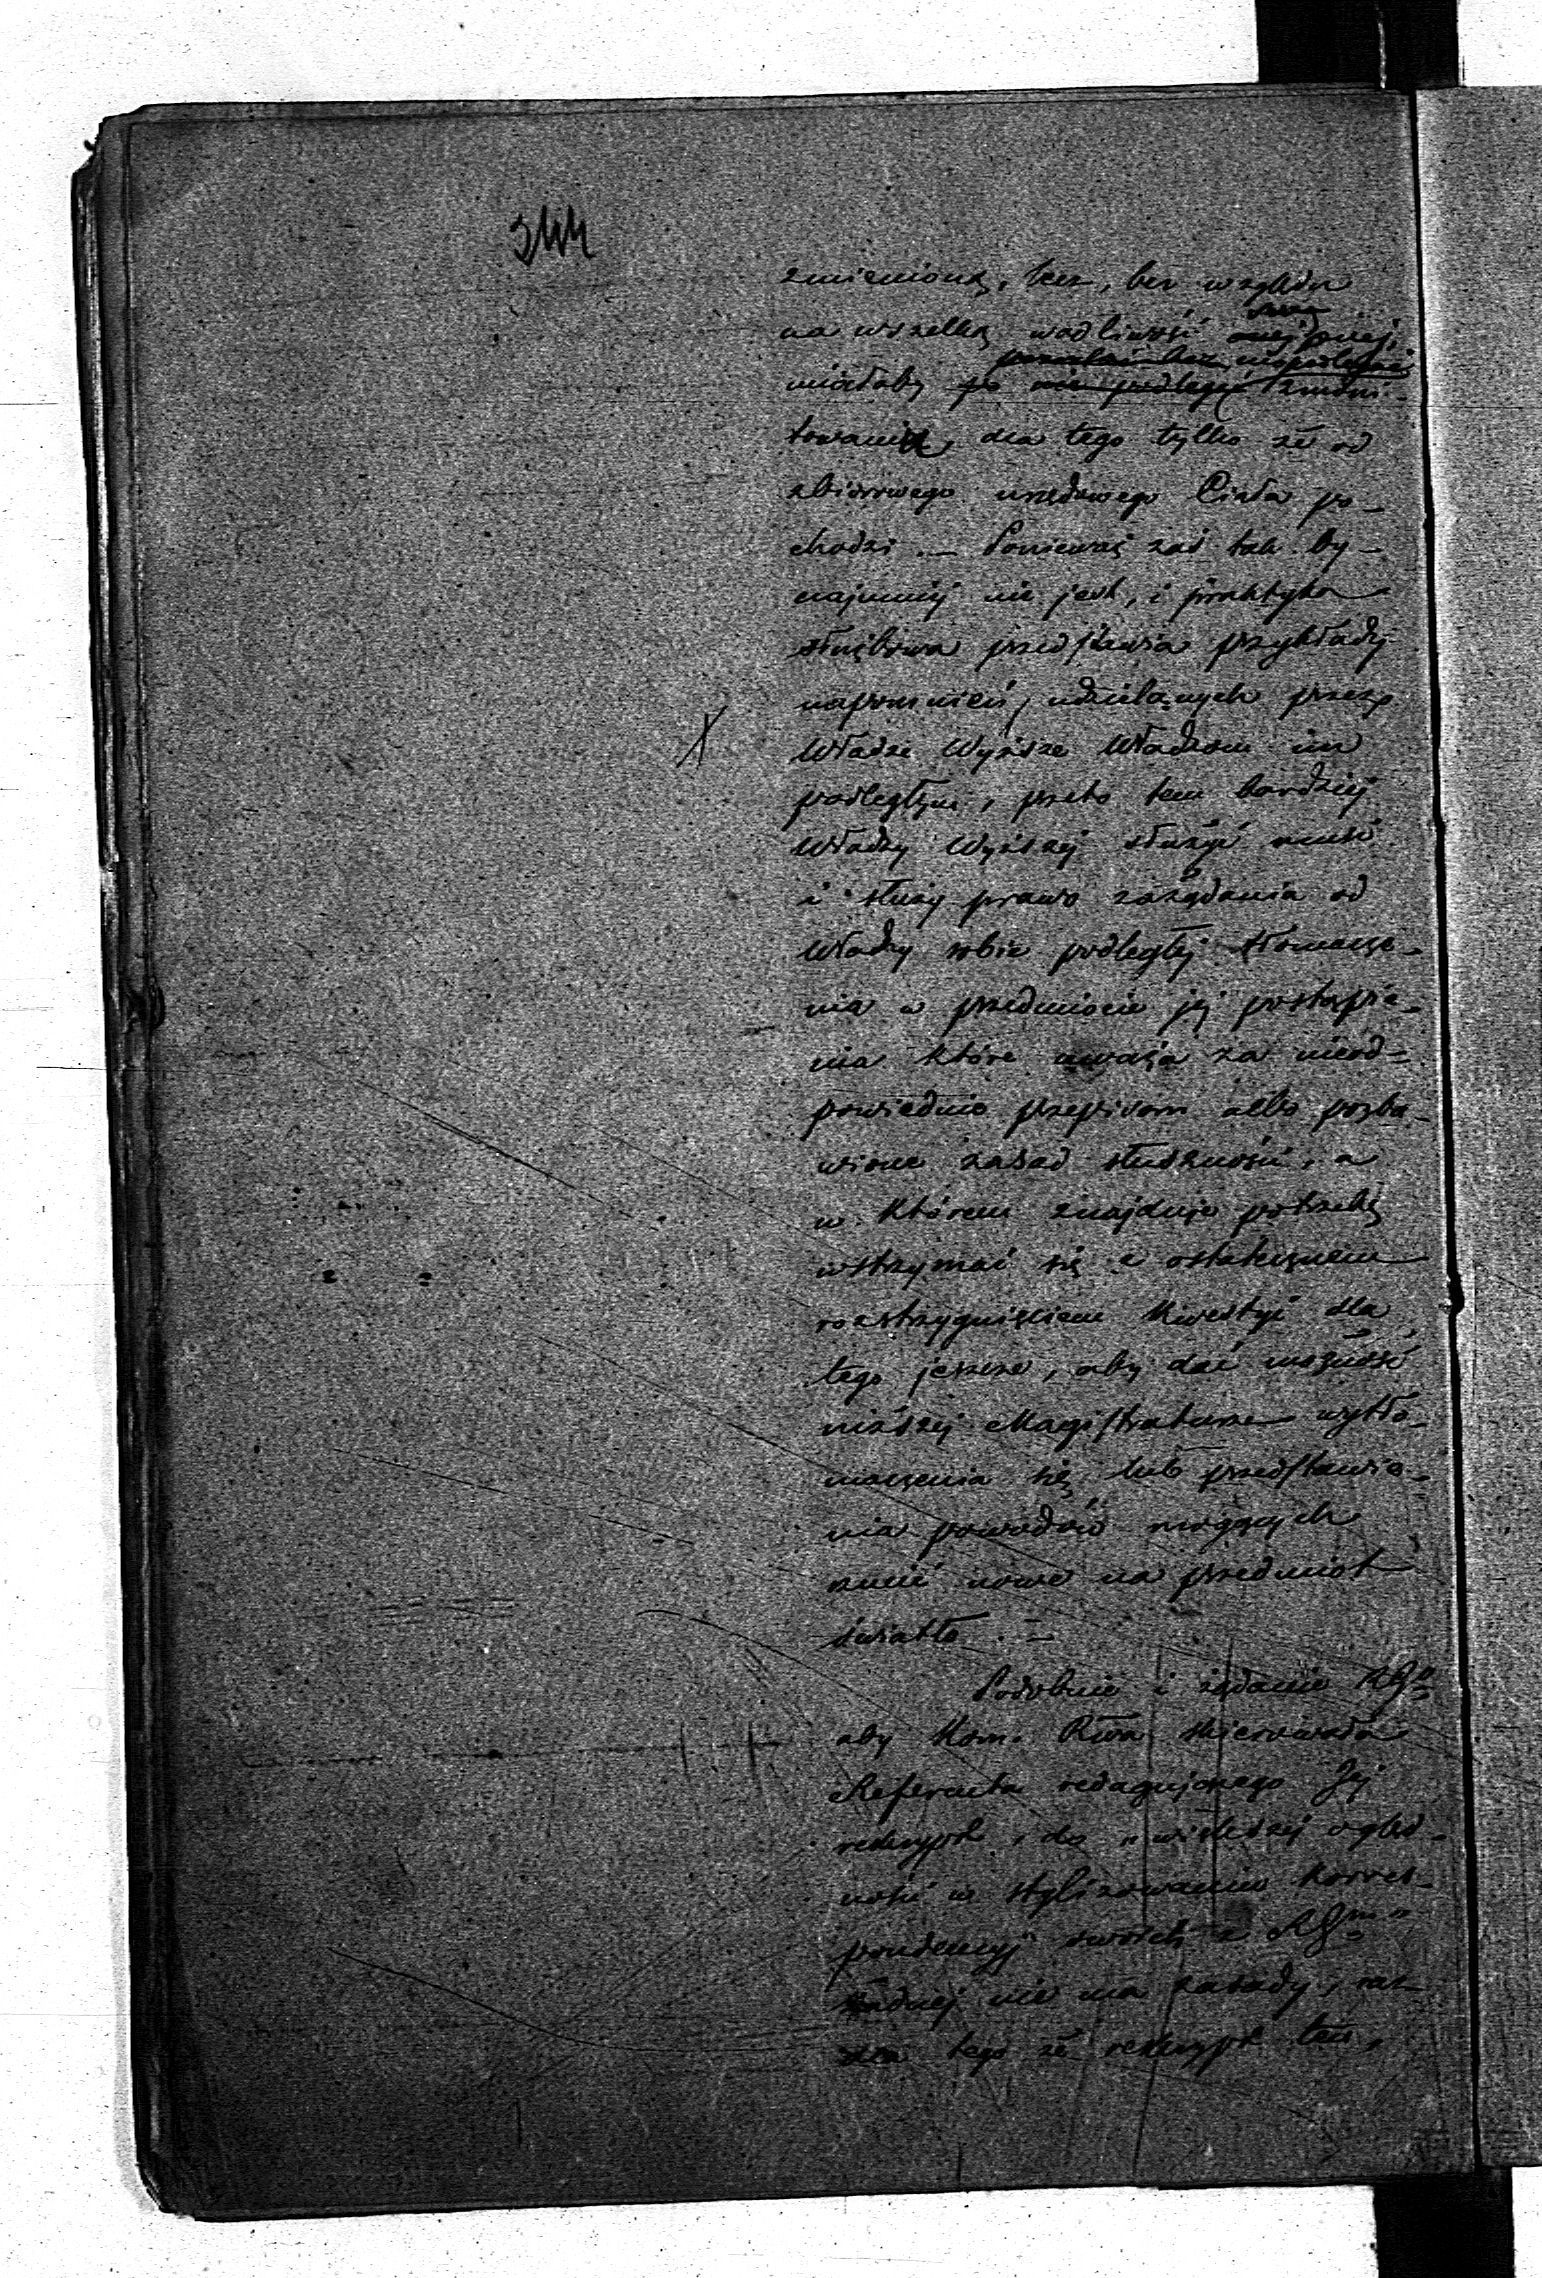 344
zmienioną, lecz, bez względu
na wszelką wadliwość swą
miałaby
towania, dla tego tylko że od
zbiorowego urzędowego Ciała po-
chodzi. — Ponieważ zaś tak by-
najmniej nie jest, i praktyka
służbowa przedstawia przykłady
napomnień, udzielanych przez
Władze Wyższe Władzom im
podległym, przeto tem bardziej
Władzy Wyższej służyć musi
i służy prawo zażądania od
Władzy sobie podległej tłomacze-
nia w przedmiocie jej postąpie-
nia które uważa za nieod-
powiednie przepisom albo pozba-
wione zasad słuszności, a
w którem znajduje potrzebę
wstrzymać się z ostatecznem
rozstrzygnięciem kwestyi dla
tego jeszcze, aby dać możność
niższej Magistraturze wytło-
maczenia się lub przedstawie-
nia powodów mogących
rzucić nowe na przedmiot
światło. —
Podobnie i żądanie RG
aby Kom. Rwa skierowała
Referenta redagującego Jej
reskrypt, do „większej oględ-
ności w stylizowaniu korres-
pondencyj swoich z RG
żadnej nie ma zasady, raz
dla tego że reskrypt ten,